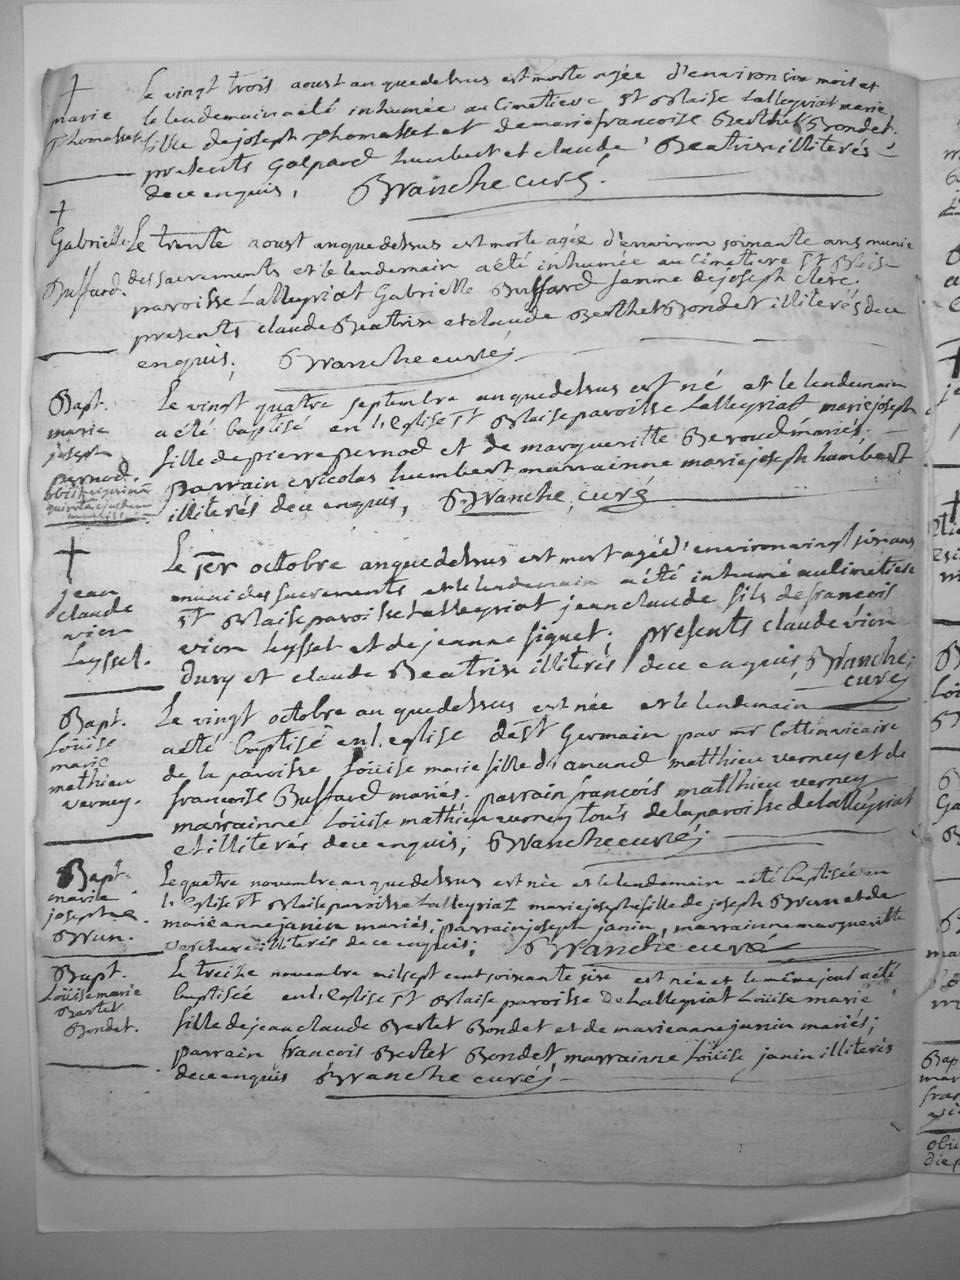 marie
Thomasset
Le vingt trois aoust an que dessus est morte agée d'environ six mois et
le lendemain a été inhumée au Cimetiere St Blaise Lalleyriat marie
fille de joseph Thomasset et de marie francoise Berthet Bondet.
presents Gaspard humbert et claude Beatrix illiterés
de ce enquis, Branche curé.
Gabrielle
Buffard.
Le trente aoust an que dessus est morte agée d'environ soixante ans munie
des sacrements et le lendemain a été inhumée au Cimetiere St Blaise
paroisse Lalleyriat Gabrielle Buffard femme de joseph Clerc,
presents claude Beatrix et claude Berthet Bondet illiterés de ce
enquis, Branche curé;
Bapt.
marie
joseph
pernod.
obiit
Le vingt quatre septembre an que dessus est né et le lendemain
a été baptisé en l'eglise St Blaise paroisse Lalleyriat marie joseph
fille de pierre pernod et de margueritte Beroud mariés.
parrain nicolas humbert marrainne marie joseph humbert
illiterés de ce enquis, Branche, curé
jean
claude
vion
Leysset.
Le 1er octobre an que dessus est mort agé d'environ vingt six ans
muni des sacrements et le lendemain a été inhumé au Cimetiere
St Blaise paroisse Lalleyriat jean claude fils de francois
vion Leysset et de jeanne figuet. presents claude vion
Dury et claude Beatrix illiterés de ce enquis, Branche,
curé
Bapt.
Loüise
marie
mathieu
verney.
Le vingt octobre an que dessus est née et le lendemain
a été baptisé en l'eglise de St Germain par mr Cottin vicaire
de la paroisse Loüise marie fille d'amand matthieu verney et de
francoise Buffard mariés. parrain francois matthieu verney
marrainne Loüise mathieu verney tous de la paroisse de Lalleyriat
et illiterés de ce enquis, Branche curé;
Bapt.
marie
josephe
Brun.
Le quatre novembre an que dessus est née et le lendemain a été baptisée en
l'eglise St Blaise paroisse Lalleyriat marie josephe fille de joseph Brun et de
marie anne janin mariés; parrain joseph janin, marrainne margueritte
illiterés de ce enquis; Branche curé
Bapt.
Loüise marie
Bertet
Bondet.
Le treize novembre mil sept cent soixante six est née et le même jour a été
baptisée en l'eglise St Blaise paroisse de Lalleyriat Loüise marie
fille de jean claude Bertet Bondet et de marie anne janin mariés;
parrain francois Bertet Bondet marrainne Loüise janin illiterés
de ce enquis Branche curé;